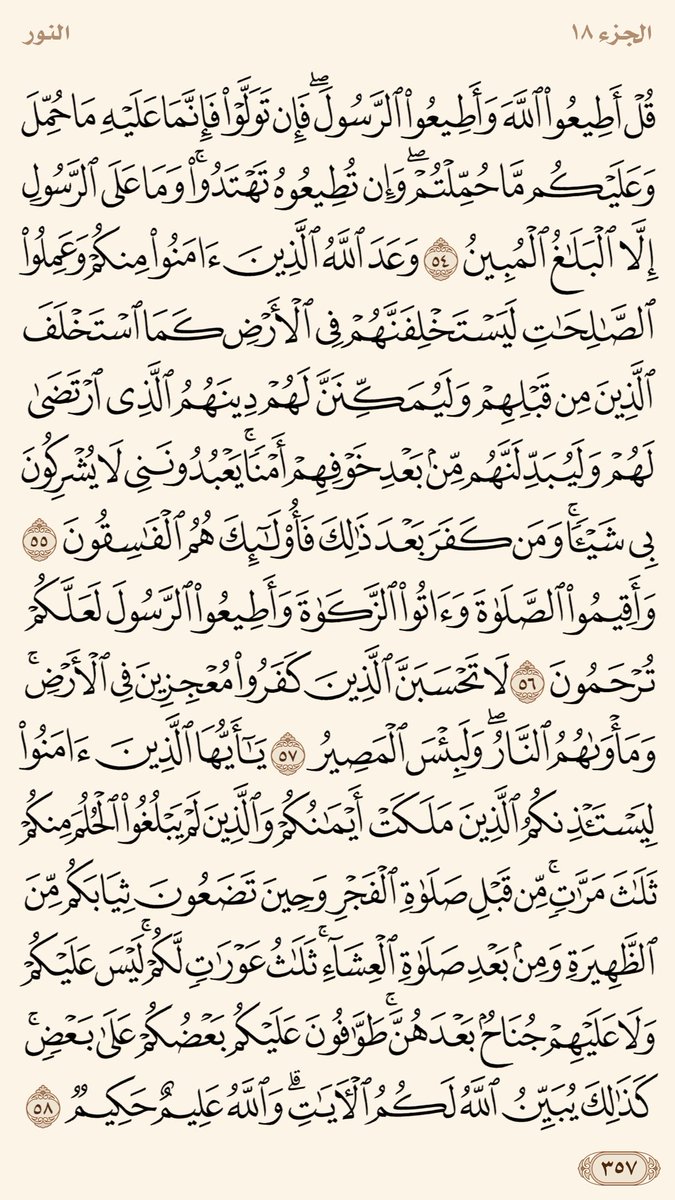 الجزء ١٨
النور
قُلْ أَطِيعُوا۟ ٱللَّهَ وَأَطِيعُوا۟ ٱلرَّسُولَ ۖ فَإِن تَوَلَّوْا۟ فَإِنَّمَا عَلَيْهِ مَا حُمِّلَ
وَعَلَيْكُم مَّا حُمِّلْتُمْ ۖ وَإِن تُطِيعُوهُ تَهْتَدُوا۟ ۚ وَمَا عَلَى ٱلرَّسُولِ
إِلَّا ٱلْبَلَٰغُ ٱلْمُبِينُ ٥٤ وَعَدَ ٱللَّهُ ٱلَّذِينَ ءَامَنُوا۟ مِنكُمْ وَعَمِلُوا۟
ٱلصَّٰلِحَٰتِ لَيَسْتَخْلِفَنَّهُمْ فِى ٱلْأَرْضِ كَمَا ٱسْتَخْلَفَ
ٱلَّذِينَ مِن قَبْلِهِمْ وَلَيُمَكِّنَنَّ لَهُمْ دِينَهُمُ ٱلَّذِى ٱرْتَضَىٰ
لَهُمْ وَلَيُبَدِّلَنَّهُم مِّنۢ بَعْدِ خَوْفِهِمْ أَمْنًا ۚ يَعْبُدُونَنِى لَا يُشْرِكُونَ
بِى شَيْـًٔا ۚ وَمَن كَفَرَ بَعْدَ ذَٰلِكَ فَأُو۟لَٰٓئِكَ هُمُ ٱلْفَٰسِقُونَ ٥٥
وَأَقِيمُوا۟ ٱلصَّلَوٰةَ وَءَاتُوا۟ ٱلزَّكَوٰةَ وَأَطِيعُوا۟ ٱلرَّسُولَ لَعَلَّكُمْ
تُرْحَمُونَ ٥٦ لَا تَحْسَبَنَّ ٱلَّذِينَ كَفَرُوا۟ مُعْجِزِينَ فِى ٱلْأَرْضِ ۚ
وَمَأْوَىٰهُمُ ٱلنَّارُ ۖ وَلَبِئْسَ ٱلْمَصِيرُ ٥٧ يَٰٓأَيُّهَا ٱلَّذِينَ ءَامَنُوا۟
لِيَسْتَـْٔذِنكُمُ ٱلَّذِينَ مَلَكَتْ أَيْمَٰنُكُمْ وَٱلَّذِينَ لَمْ يَبْلُغُوا۟ ٱلْحُلُمَ مِنكُمْ
ثَلَٰثَ مَرَّٰتٍ ۚ مِّن قَبْلِ صَلَوٰةِ ٱلْفَجْرِ وَحِينَ تَضَعُونَ ثِيَابَكُم مِّنَ
ٱلظَّهِيرَةِ وَمِنۢ بَعْدِ صَلَوٰةِ ٱلْعِشَآءِ ۚ ثَلَٰثُ عَوْرَٰتٍ لَّكُمْ ۚ لَيْسَ عَلَيْكُمْ
وَلَا عَلَيْهِمْ جُنَاحٌۢ بَعْدَهُنَّ ۚ طَوَّٰفُونَ عَلَيْكُم بَعْضُكُمْ عَلَىٰ بَعْضٍ ۚ
كَذَٰلِكَ يُبَيِّنُ ٱللَّهُ لَكُمُ ٱلْءَايَٰتِ ۗ وَٱللَّهُ عَلِيمٌ حَكِيمٌ ٥٨
٣٥٧